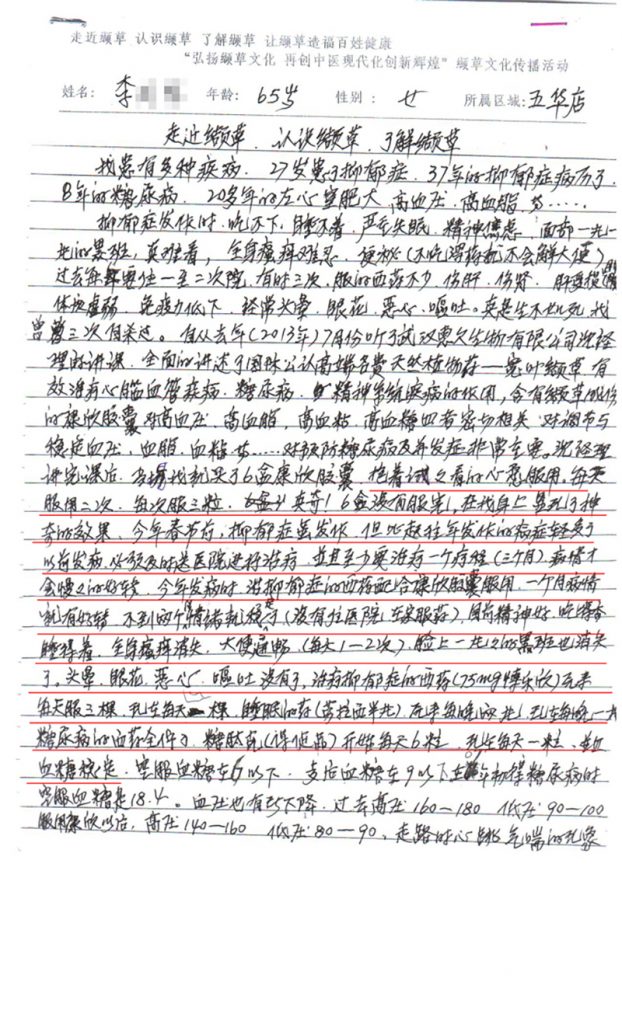 走近缬草 认识缬草 了解缬草 让缬草造福百姓健康
“弘扬缬草文化 再创中医现代化创新辉煌”缬草文化传播活动
姓名：李 年龄：65岁 性别：女 所属区域：五华店
走近缬草、认识缬草、了解缬草
我患有多种疾病、27岁患了抑郁症、37年的抑郁症病历了、
8年的糖尿病、20多年的左心室肥大、高血压、高血脂等……
抑郁症发作时、吃不下、睡不着、严重失眠、精神焦虑、面部一片一
片的黑班，真难看，全身瘙痒难忍、便祕（不吃泻药就不会解大便）
过去每年要住一至二次院、有时三次、服的西药不少、伤肝、伤肾、肝受损
体质虚弱、免疫力低下、经常头晕、眼花、恶心、呕吐。真是生不如死、我
曾三次自杀过。自从去年（2013年）7月份听了 生物有限公司沈经
理的讲课、全面的讲述了国际公认高端名贵天然植物药——宽叶缬草有
效治疗心脑血管疾病、糖尿病、精神系统疾病的作用，含有缬草成份
的康欣胶囊对高血压、高血脂，高血粘，高血糖四者密切相关、对调节与
稳定血压、血脂、血糖等……对预防糖尿病及并发症非常主要、沈经理
讲完课后、当场我就买了6盒康欣胶囊、抱着试之看的心态服用、每天
服用二次、每次服三粒、 6盒没有服完，在我身上显示了神
奇的效果、今年春节前，抑郁症虽发作、但比起往年发作的病症轻多了
以前发病、必须及时送医院进行治疗，并且至少要治疗一个疗程（三个月）病情才
会慢之的好转、今年发病时、治抑郁症的西药配合康欣胶囊服用、一个月病情
就有好转、不到两个月情绪就稳定了（没有住医院、在家服药），目前精神好、吃得香
睡得着、全身瘙痒消失、大便通畅、（每天1—2次）、脸上一片之的黑班也消失
了、头晕、眼花、恶心、呕吐没有了，治疗抑郁症的西药（75mg博乐欣）原来
每天服三粿、现在每天一粿、睡眠的药（劳拉西半片）原来每晚两片、现在每晚一片
糖尿病的西药全停了、糖肽 开始每天6粒、现在每天一粒、
血糖稳定、空服血糖在6以下、支后血糖在9以下 年初得糖尿病时
空服血糖是18.4。血压也有所下降、过去高压160—180 低压90—100
服用康欣以后，高压140—160 低压80—90、走路时心跳气喘的现象